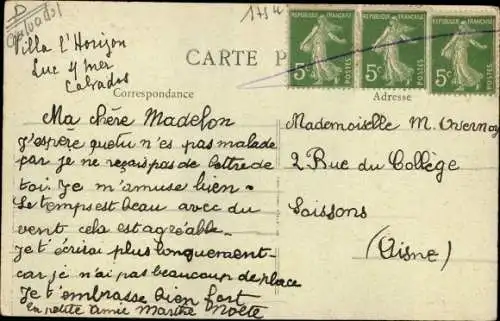 D
Calvados
1754
Villa l'Horizon
Luc s/ mer
Calvados
CARTE P
Correspondance
Adresse
REPUBLIQUE FRANÇAISE
5c
POSTES
REPUBLIQUE FRANÇAISE
5c
POSTES
REPUBLIQUE FRANÇAISE
5c
POSTES
Ma chère Madelon
J'espère que tu n'es pas malade
car je ne reçois pas de lettre de
toi. Je m'amuse bien.
Le temps est beau avec du
vent cela est agréable.
Je t'écrirai plus longuement
car je n'ai pas beaucoup de place
Je t'embrasse bien fort
Ta petite amie Marthe
Mademoiselle M.
2 Rue du Collège
Soissons
(Aisne)